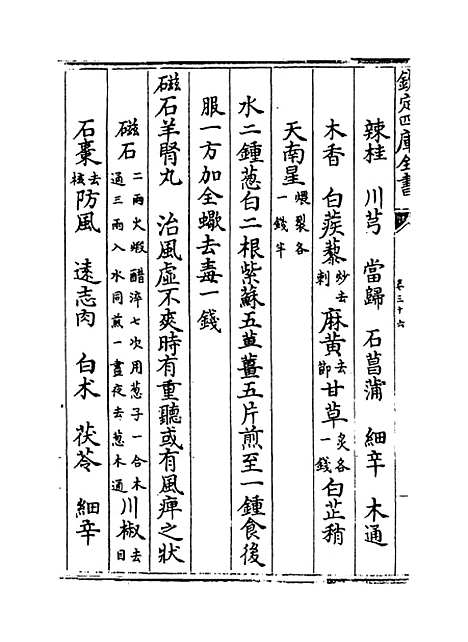 欽定四庫全書
卷三十六
辣桂 川芎 當歸 石菖蒲 細辛 木通
木香 白蒺藜炒去刺 麻黄去節 甘草炙各一錢 白芷稍
天南星煨裂各一錢半
水二鍾葱白二根紫蘇五葉薑五片煎至一鍾食後
服一方加全蠍去毒一錢
磁石羊腎丸 治風虛不爽時有重聽或有風痺之狀
磁石二兩火煅醋淬七次用葱子一合木通三兩入水同煎一晝夜去葱木通 川椒去目
石棗去核 防風 遠志肉 白朮 茯苓 細辛